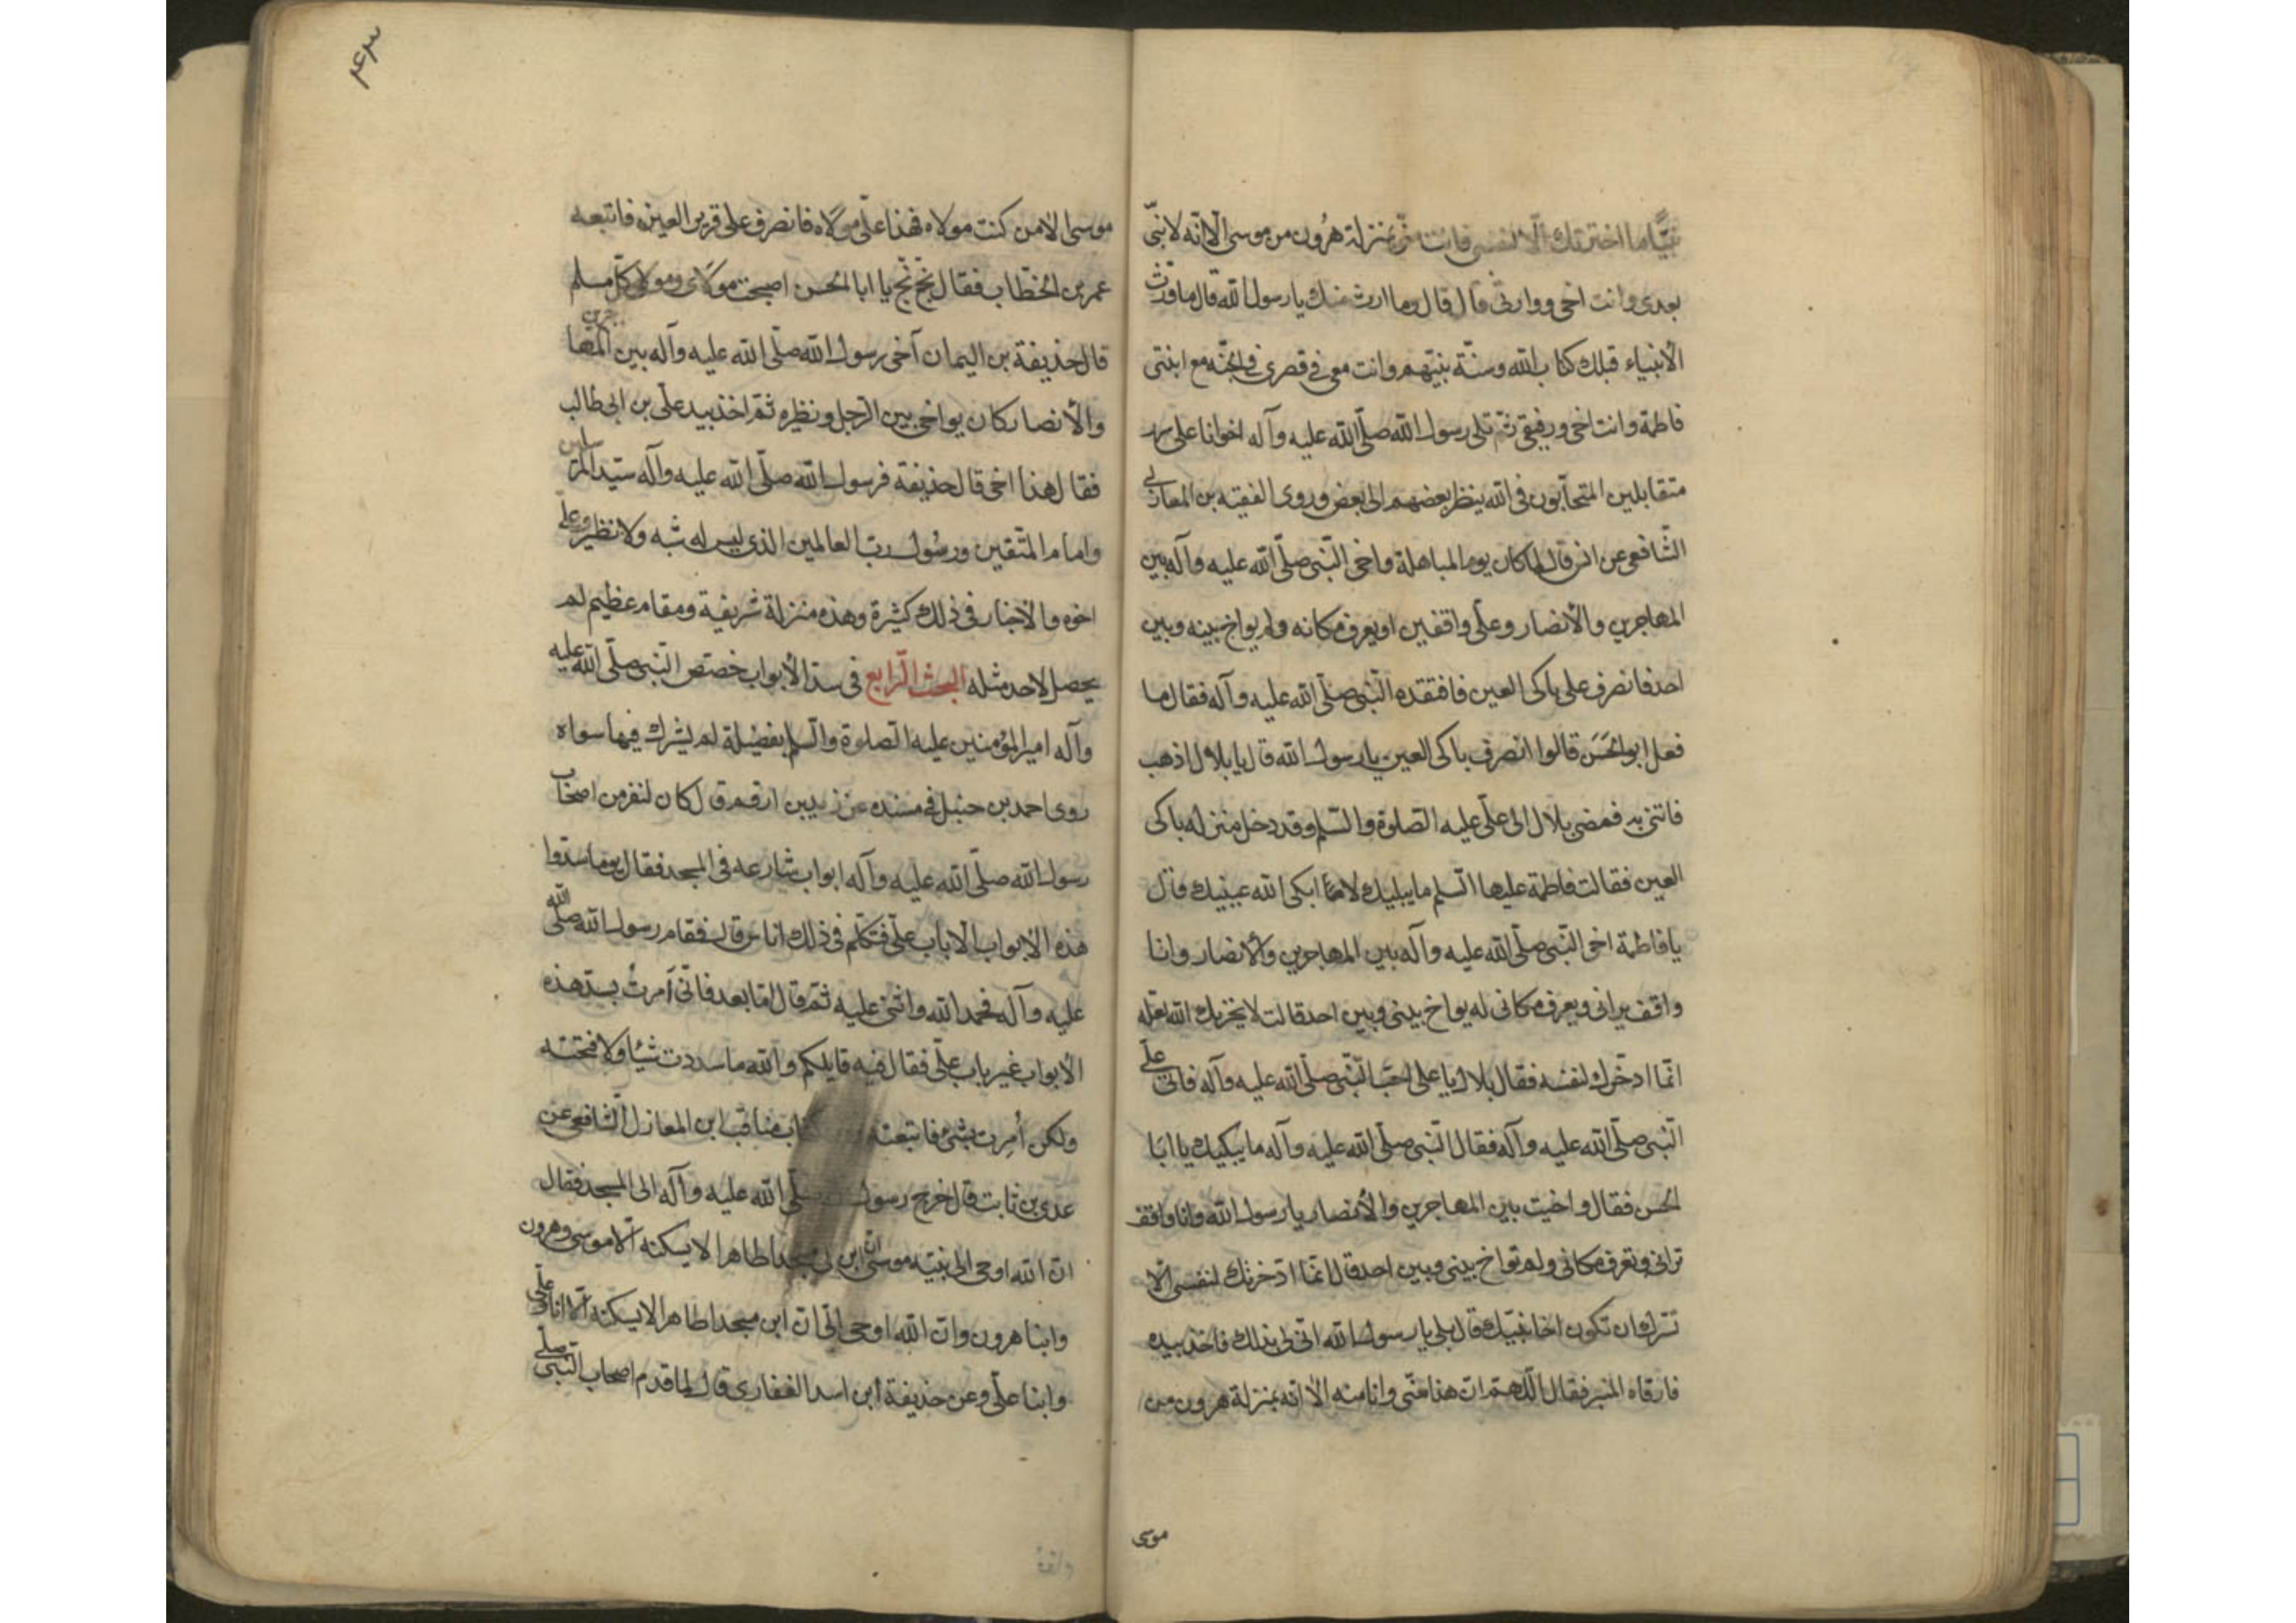 نبيًّا ما اخترتك الّا لنفسى فانت منّى بمنزلة هرُون من موسى الّا انّه لا نبىّ
بعدى وانت اخى ووارثى قال قال وما ارث منك يا رسول الله قال ما ورّث
الأنبياء قبلك كتاب الله وسنّة نبيّهم وانت معى فى قصرى فى الجنّة مع ابنتى
فاطمة وانت اخى ورفيقى ثمّ تلى رسول الله صلّى الله عليه وآله اخوانا على سرر
متقابلين المتحابّون فى الله ينظر بعضهم الى بعض وروى الفقيه بن المغازلى
الشّافعى عن انس قال لما كان يوم المباهلة واخى النّبى صلّى الله عليه وآله بين
المهاجرين والأنصار وعلّى واقف يراه ويعرف مكانه ولم يواخ بينه وبين
احد فانصرف على باكى العين فافتقده النّبى صلّى الله عليه وآله فقال ما
فعل ابو الحَسَن قالوا انصرف باكى العين يا رسول الله قال يا بلال اذهب
فاتنى به فمضى بلال الى علّى عليه الصّلوة والسّلم وقد دخل منزله باكى
العين فقالت فاطمة عليها السّلم ما يبليك لا ابكى الله عينيك قال
يا فاطمة اخى النّبى صلّى الله عليه وآله بين المهاجرين والأنصار وانا
واقف يرانى ويعرف مكانى لم يواخ بينى وبين احد قالت لا يخزيك الله لعله
انّما ادخّرك لنفسه فقال بلال يا على اجب النّبى صلّى الله عليه وآله فاتى علّى
النّبى صلّى الله عليه وآله فقال النّبى صلّى الله عليه وآله ما يبكيك يا ابا
الحسن فقال واخيت بين المهاجرين والأنصار يا رسول الله وانا واقف
ترانى وتعرف مكانى ولم تواخ بينى وبين احد قال انّما ادّخرتك لنفسى الّا
تسّرك ان تكون اخا نبيّك قال بلى يا رسول الله انّى لى بذلك فاخذ بيده
فارقاه المنبر فقال اللّهمّ انّ هذا منّى وانا منه الا انّه بمنزلة هرون من
موسى
موسى الا من كنت مولاه فهذا علّى مولاه فانصرف على قرير العين فاتبعه
عمر بن الخطّاب فقال بخ بخ يا ابا الحسن اصبحت مولاى ومولى كلّ مسلم
قال حذيفة بن اليمان آخى رسول الله صلّى الله عليه وآله بين المهاجرين
والأنصار كان يواخى بين الرّجل ونظيره ثمّ اخذ بيد علّى بن ابى طالب
فقال هذا اخى قال حذيفة فرسول الله صلّى الله عليه وآله سيّد المرسلين
وامام المتّقين ورسُول ربّ العالمين الذى ليس له شبه ولا نظير وعلّى
اخوه والاخبار فى ذلك كثيرة وهذه منزلة شريفة ومقام عظيم لم
يحصل لاحد مثله البحث الرّابع فى سدّ الأبواب خصّص النّبى صلّى الله عليه
وآله امير المؤمنين عليه الصّلوة والسّلم بفضيلة لم يشرك فيها سواه
روى احمد بن حنبل فى مسنده عن زيد بن ارقم قال كان لنفر من اصحاب
رسول الله صلّى الله عليه وآله ابواب شارعه فى المسجد فقال يوما سدّوا
هذه الأبواب الّا باب علّى فتكلّم فى ذلك اناس قال فقام رسول الله صلّى الله
عليه وآله فحمد الله واثنى عليه ثمّ قال امّا بعد فانّى اَمرتُ بسدّ هذه
الأبواب غير باب علّى فقال فيه قايلكم والله ما سددت شيئا ولا فتحته
ولكن اُمِرت بشئ فاتبعته مناقب ابن المغازل الشّافعى عن
عدى بن ثابت قال خرج رسول الله صلّى الله عليه وآله الى المسجد فقال
انّ الله اوحى الى نبيّه موسى ان ابن لى مسجدا طاهرا لا يسكنه الّا موسى وهرون
وابنا هرون وانّ الله اوحى الىّ ان ابن مسجدا طاهرا لا يسكنه الّا انا وعلّى
وابنا علّى وعن حذيفة ابن اسد الغفارى قال لما قدم اصحاب النّبى صلّى